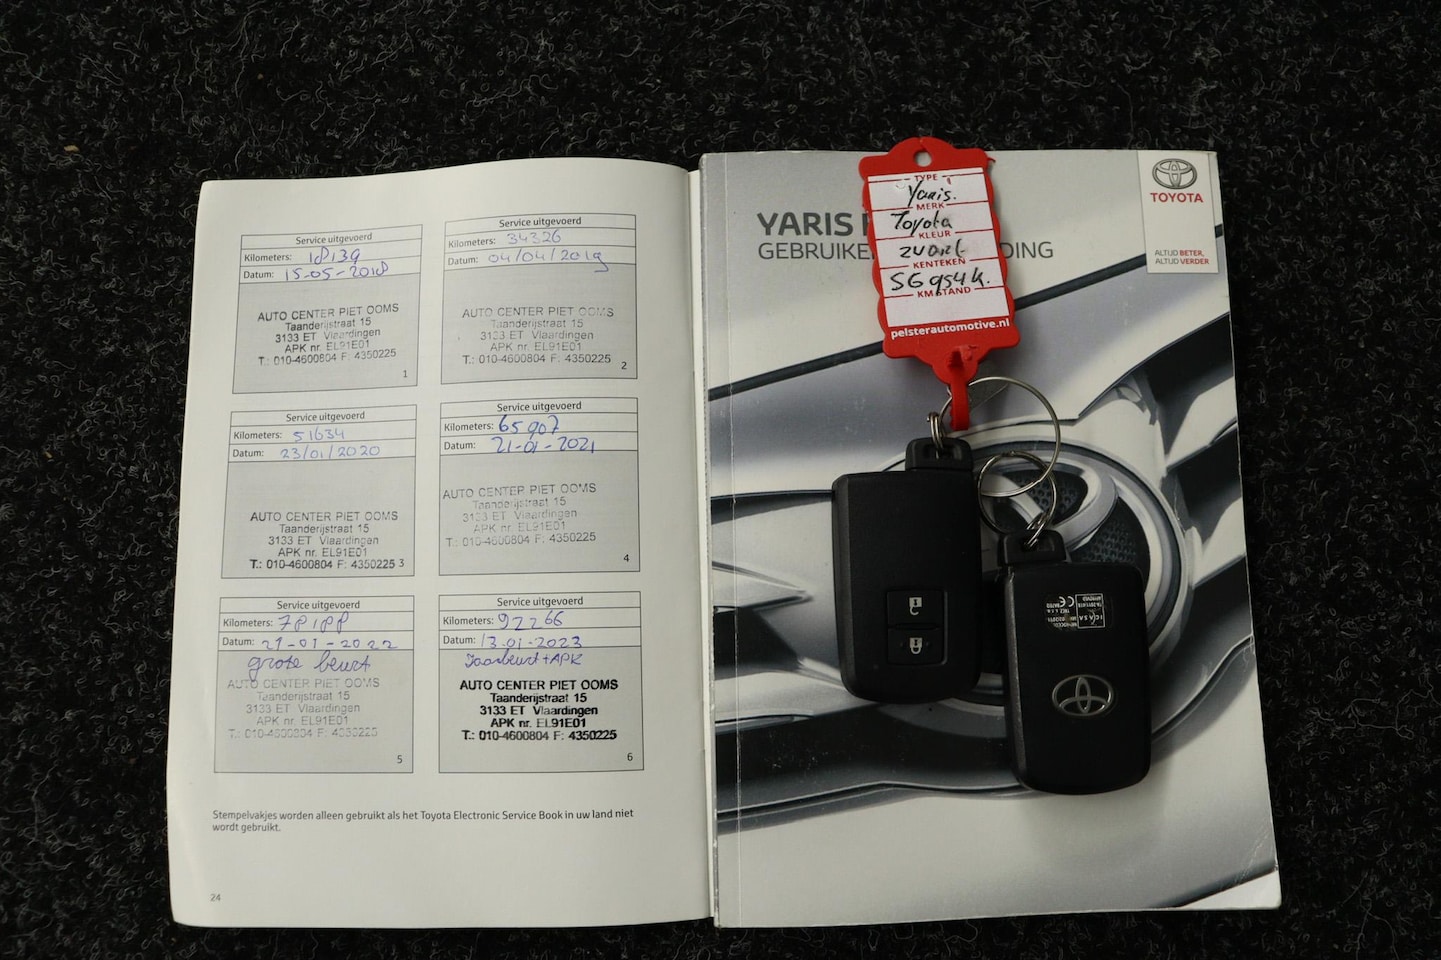 Service uitgevoerd
Kilometers: 18139
Datum: 15-05-2018
AUTO CENTER PIET OOMS
Taanderijstraat 15
3133 ET Vlaardingen
APK nr. EL91E01
T.: 010-4600804 F: 4350225
1
Service uitgevoerd
Kilometers: 34326
Datum: 04/04/2019
AUTO CENTER PIET OOMS
Taanderijstraat 15
3133 ET Vlaardingen
APK nr. EL91E01
T.: 010-4600804 F: 4350225
2
Service uitgevoerd
Kilometers: 51634
Datum: 23/01/2020
AUTO CENTER PIET OOMS
Taanderijstraat 15
3133 ET Vlaardingen
APK nr. EL91E01
T.: 010-4600804 F: 4350225
3
Service uitgevoerd
Kilometers: 65907
Datum: 21-01-2021
AUTO CENTER PIET OOMS
Taanderijstraat 15
3133 ET Vlaardingen
APK nr. EL91E01
T.: 010-4600804 F: 4350225
4
Service uitgevoerd
Kilometers: 78188
Datum: 21-01-2022
grote beurt
AUTO CENTER PIET OOMS
Taanderijstraat 15
3133 ET Vlaardingen
APK nr. EL91E01
T.: 010-4600804 F: 4350225
5
Service uitgevoerd
Kilometers: 92266
Datum: 13-01-2023
Jaarbeurt + APK
AUTO CENTER PIET OOMS
Taanderijstraat 15
3133 ET Vlaardingen
APK nr. EL91E01
T.: 010-4600804 F: 4350225
6
Stempelvakjes worden alleen gebruikt als het Toyota Electronic Service Book in uw land niet
wordt gebruikt.
24
YARIS
GEBRUIKE DING
TOYOTA
ALTIJD BETER,
ALTIJD VERDER
TYPE
Yaris.
MERK
Toyota
KLEUR
zwart
KENTEKEN
SG954K.
KM STAND
pelsterautomotive.nl
ICASA